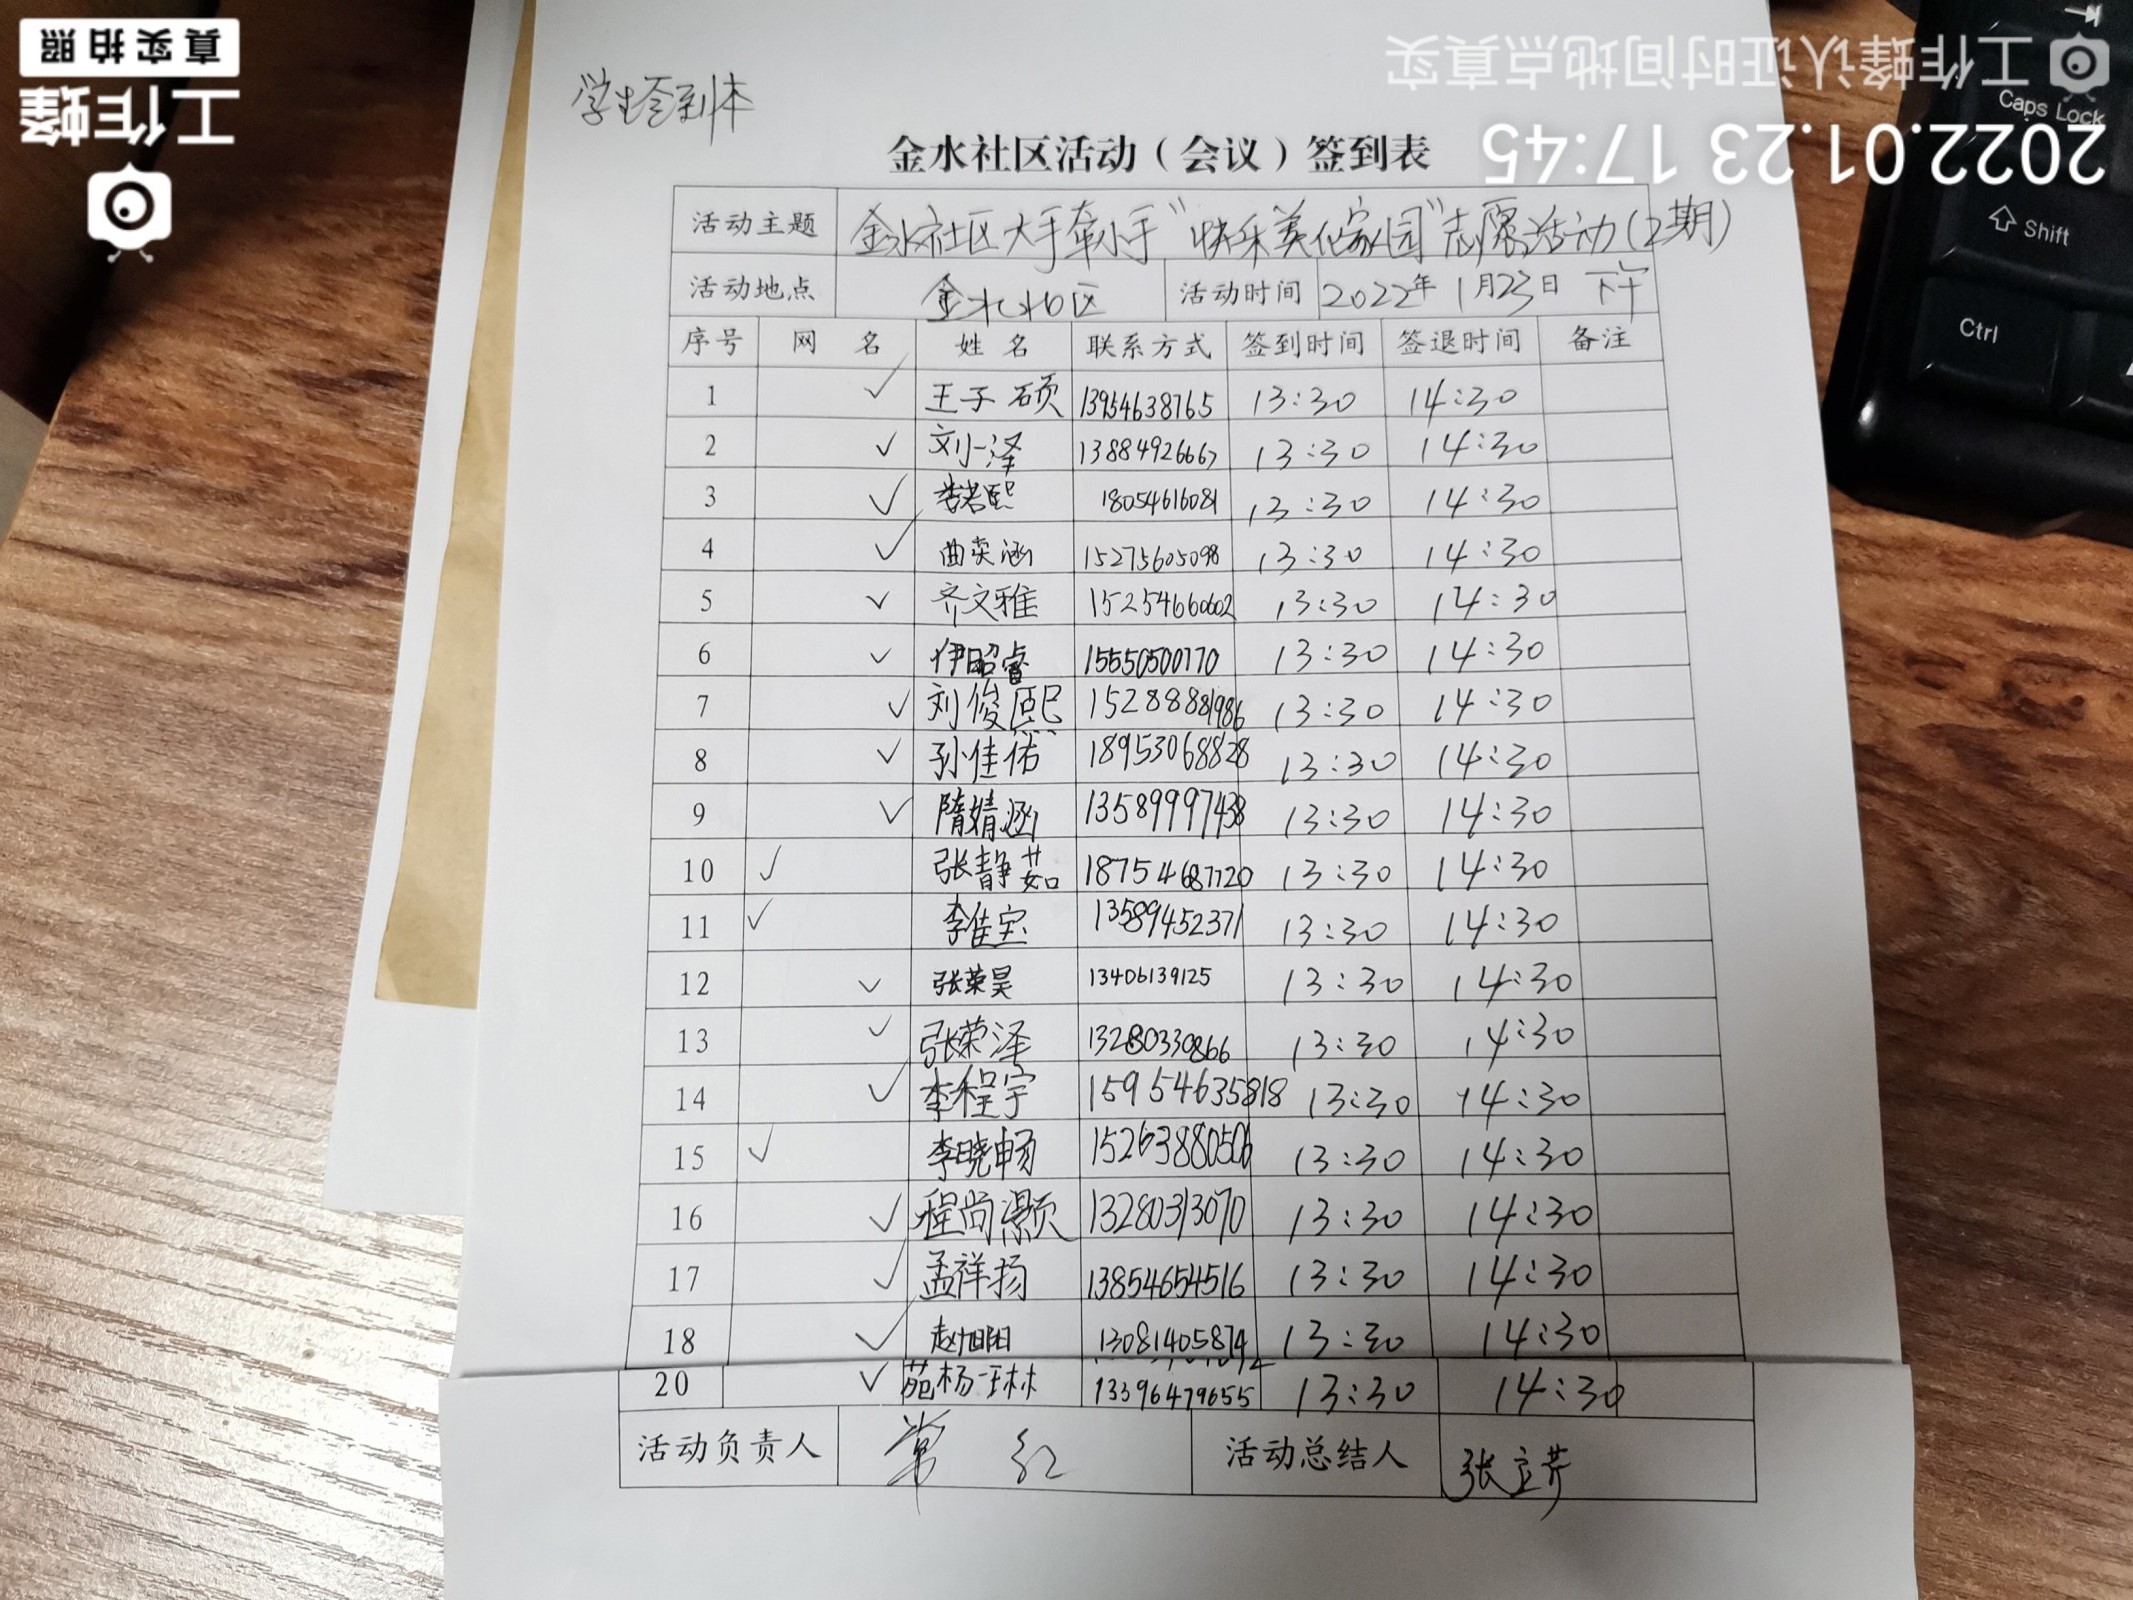 工作蜂认证时间地点真实
2022.01.23 17:45
真实拍照
工作蜂
Caps Lock
Shift
Ctrl
学生签到本
金水社区活动（会议）签到表
活动主题 金水社区大手牵小手“快乐美化家园”志愿活动(2期)
活动地点 金水社区 活动时间 2022年1月23日 下午
序号 网名 姓名 联系方式 签到时间 签退时间 备注
1 ✓ 王子硕 13954638765 13:30 14:30
2 ✓ 刘一泽 13884926667 13:30 14:30
3 ✓ 李若熙 18054616081 13:30 14:30
4 ✓ 曲奕涵 15275605098 13:30 14:30
5 ✓ 齐文雅 15254660602 13:30 14:30
6 ✓ 伊昭睿 15550500770 13:30 14:30
7 ✓ 刘俊熙 15288881986 13:30 14:30
8 ✓ 孙佳佑 18953068828 13:30 14:30
9 ✓ 隋婧涵 13589997438 13:30 14:30
10 ✓ 张静茹 18754687720 13:30 14:30
11 ✓ 李佳宝 13589452371 13:30 14:30
12 ✓ 张荣昊 13406139125 13:30 14:30
13 ✓ 张荣泽 13280330866 13:30 14:30
14 ✓ 李程宇 15954635818 13:30 14:30
15 ✓ 李晓畅 15263880506 13:30 14:30
16 ✓ 程尚灏 13280313070 13:30 14:30
17 ✓ 孟祥扬 13854654516 13:30 14:30
18 ✓ 赵旭阳 13081405874 13:30 14:30
20 ✓ 苑杨一琳 13396479655 13:30 14:30
活动负责人 常红 活动总结人 张立芹